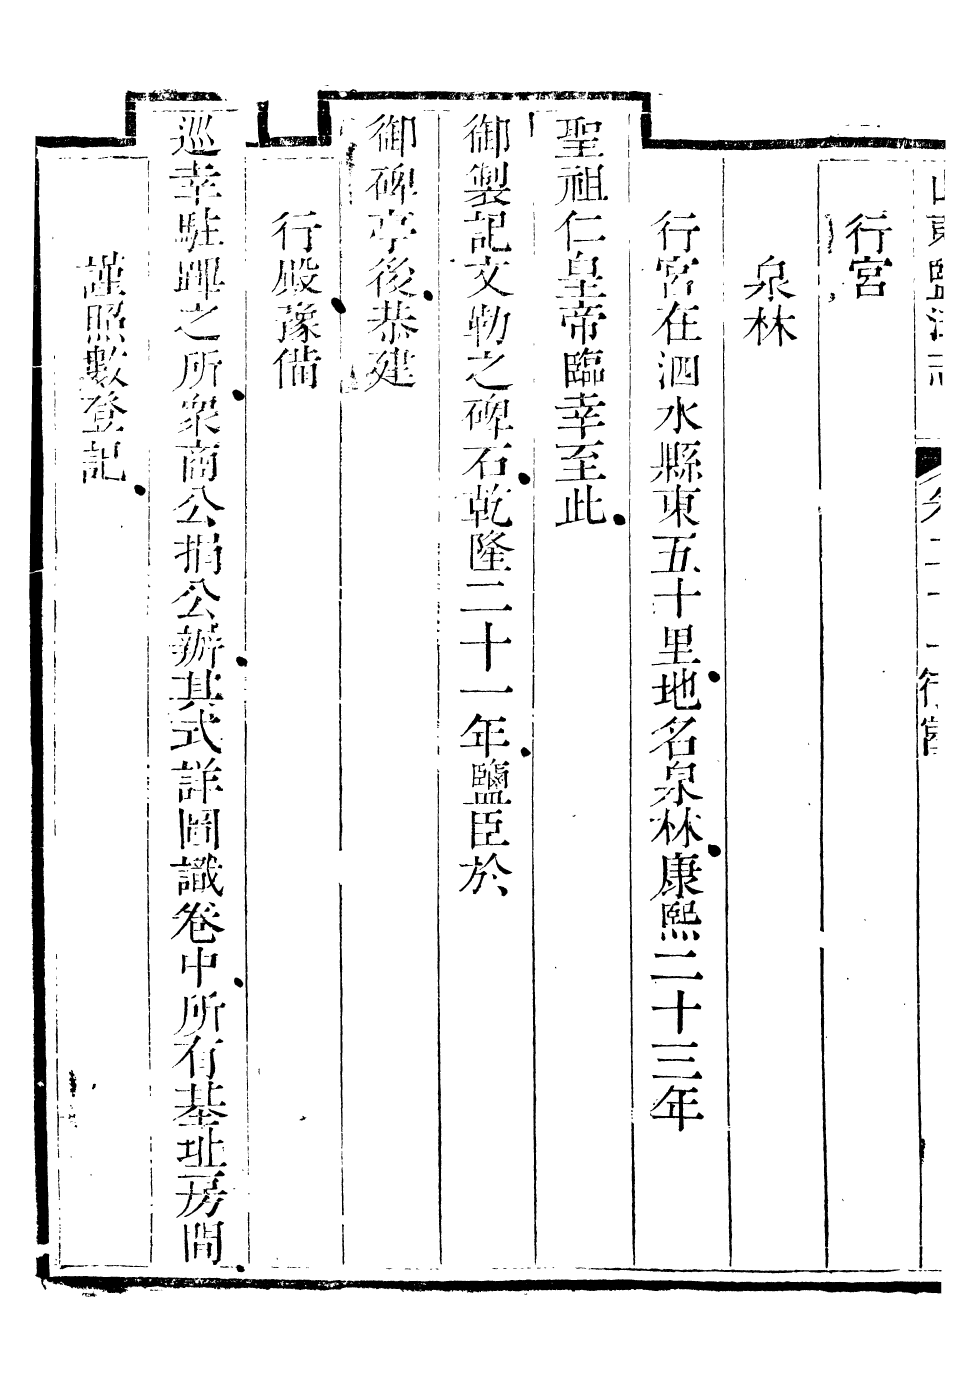 山東鹽法志 卷二十一 行宮
行宮
泉林
行宮在泗水縣東五十里地名泉林康熙二十三年
聖祖仁皇帝臨幸至此
御製記文勒之碑石乾隆二十一年鹽臣於
御碑亭後恭建
行殿豫備
巡幸駐蹕之所衆商公捐公辦其式詳圖識卷中所有基址房間
謹照數登記